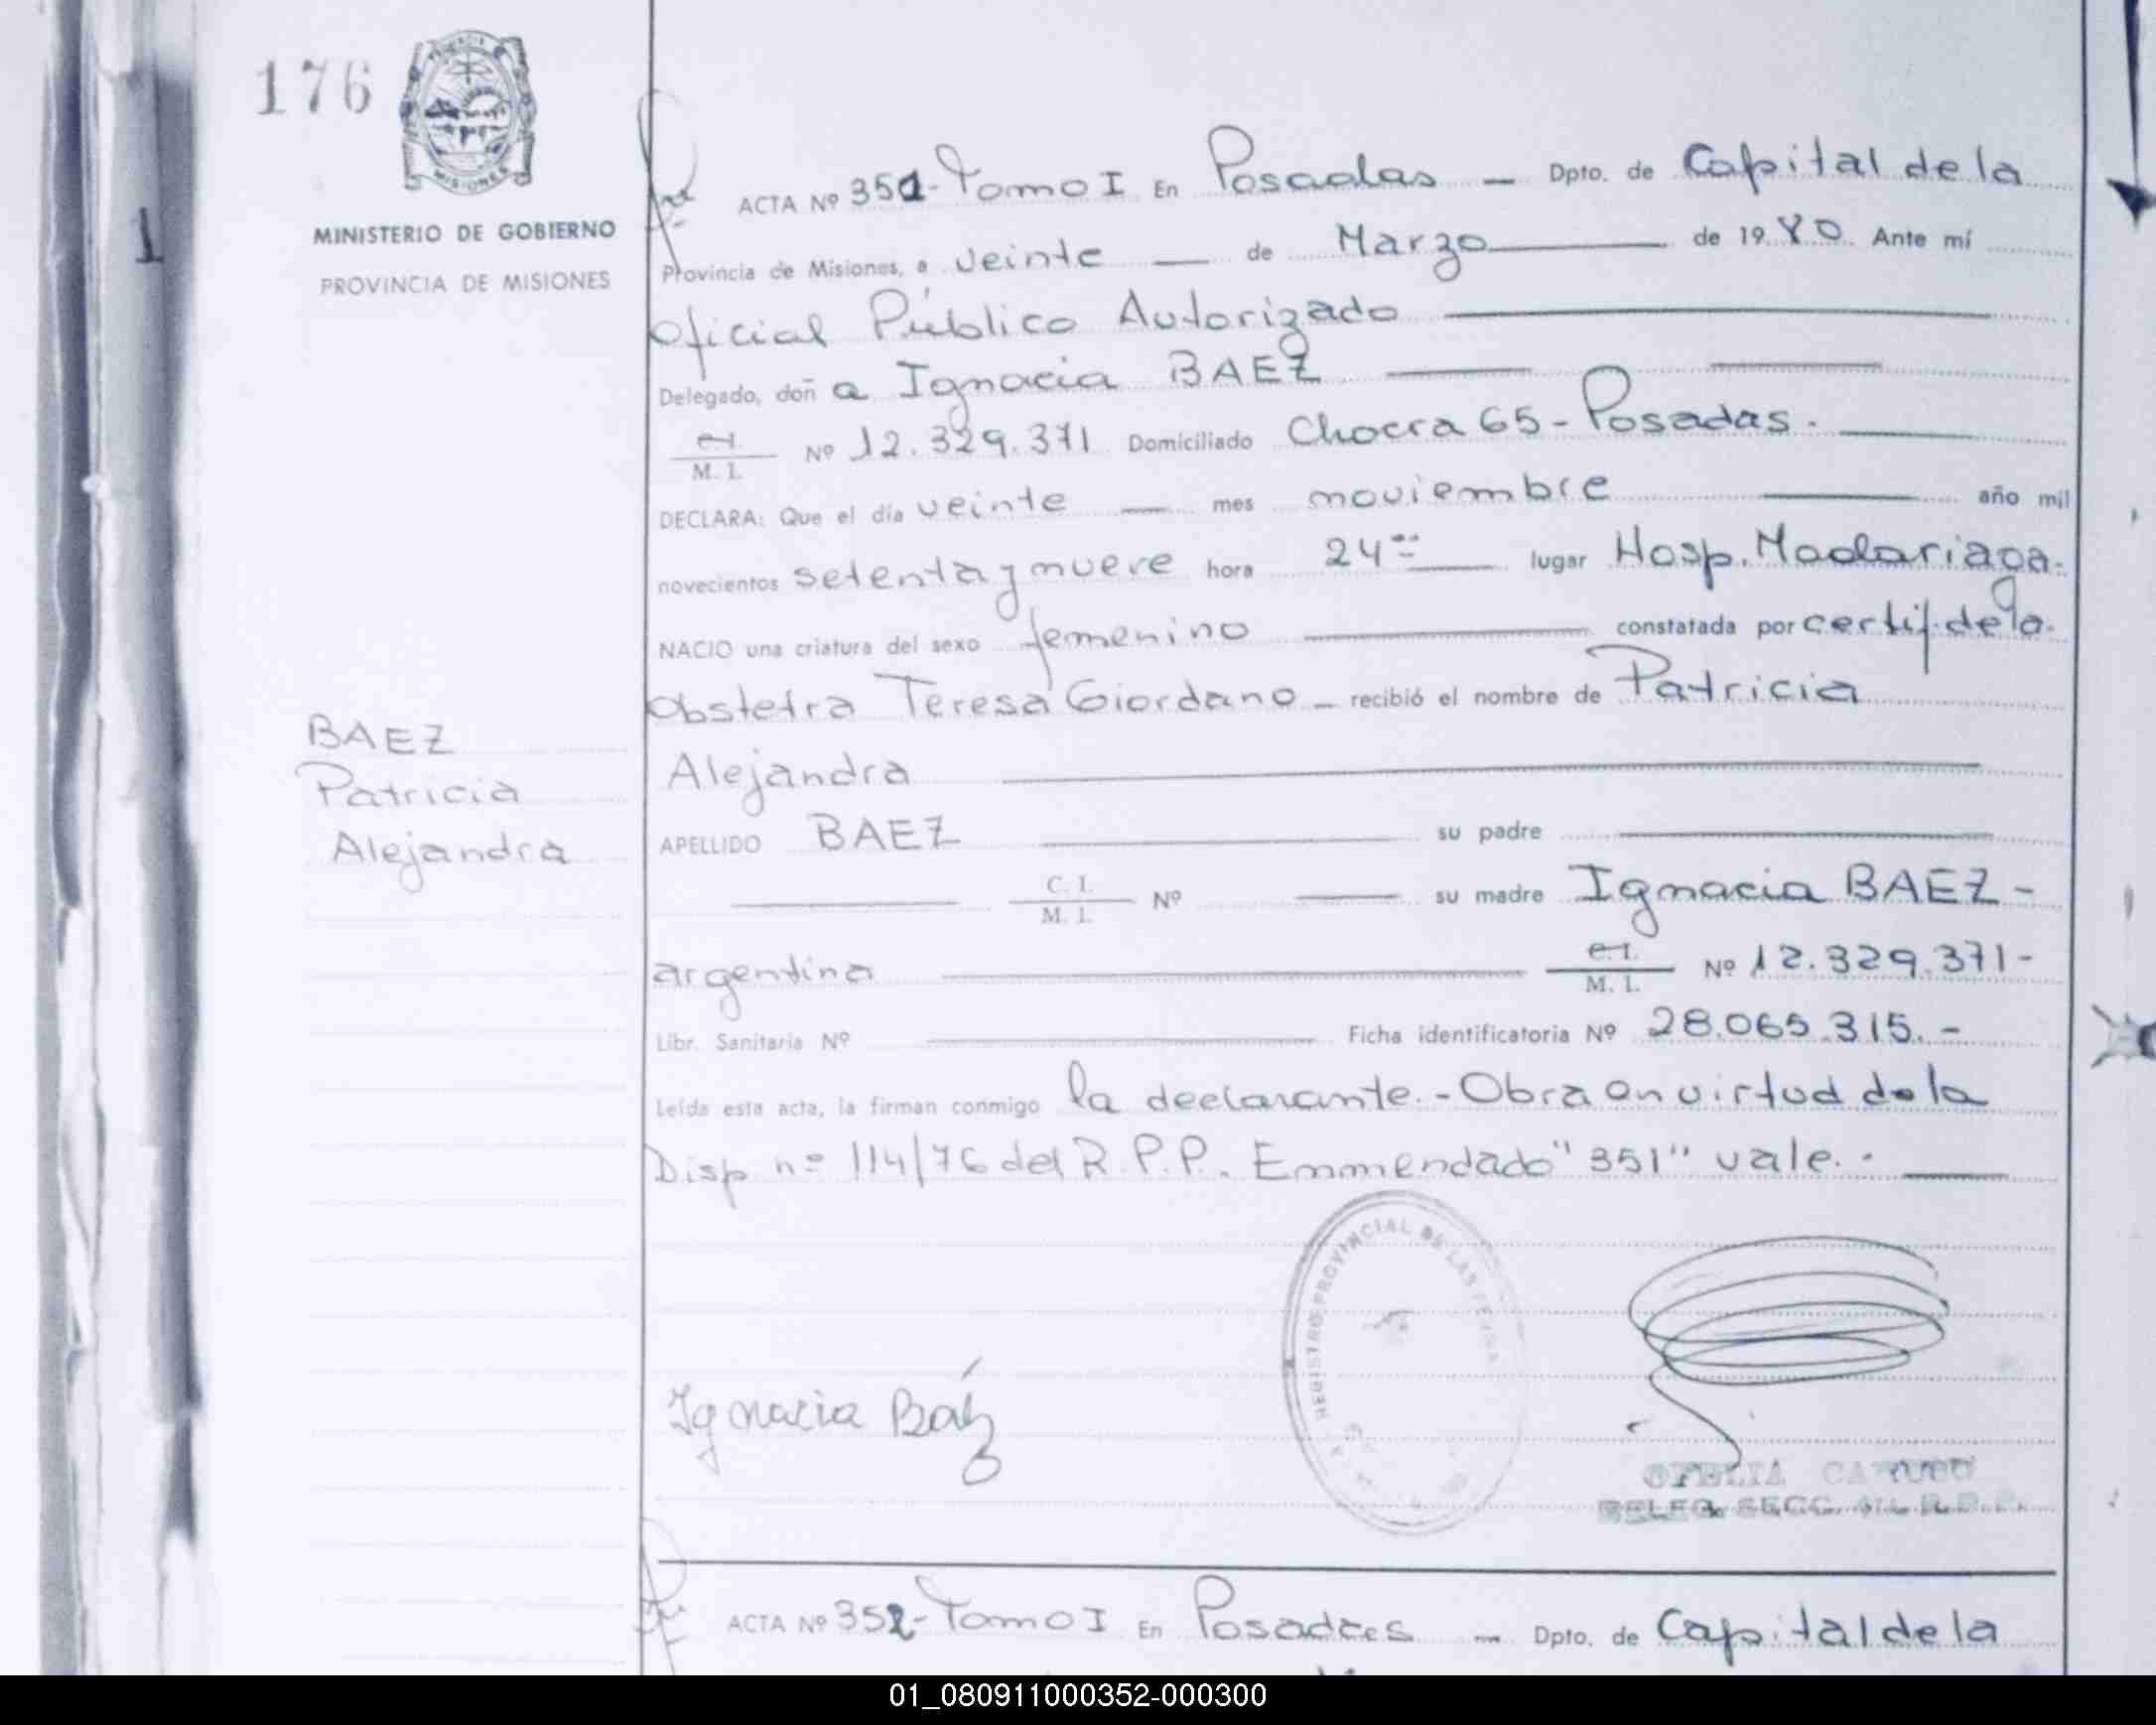 176
MISIONES
MINISTERIO DE GOBIERNO
PROVINCIA DE MISIONES
1
ACTA Nº 351 - Tomo I En Posadas — Dpto. de Capital de la
Provincia de Misiones, a veinte — de Marzo — de 1980 Ante mí
Oficial Público Autorizado
Delegado, doña Ignacia BAEZ
C.I. M. I. Nº 12.329.371 Domiciliado Chacra 65 - Posadas.
DECLARA: Que el día veinte — mes noviembre — año mil
novecientos setenta y nueve hora 24 — lugar Hosp. Madariaga.
NACIO una criatura del sexo femenino — constatada por certif. de la
Obstetra Teresa Giordano — recibió el nombre de Patricia
Alejandra
APELLIDO BAEZ — su padre —
— C. I. M. I. Nº — su madre Ignacia BAEZ -
argentina — C.I. M. I. Nº 12.329.371 -
Libr. Sanitaria Nº — Ficha identificatoria Nº 28.065.315. -
Leída esta acta, la firman conmigo la declarante. - Obra en virtud de la
Disp nº 114/76 del R.P.P. Enmendado "351" vale. -
BAEZ
Patricia
Alejandra
REGISTRO PROVINCIAL DE LAS
Ignacia Báez
OFELIA
DELEG. SECC.
ACTA Nº 352 - Tomo I En Posadas — Dpto. de Capital de la
01_080911000352-000300